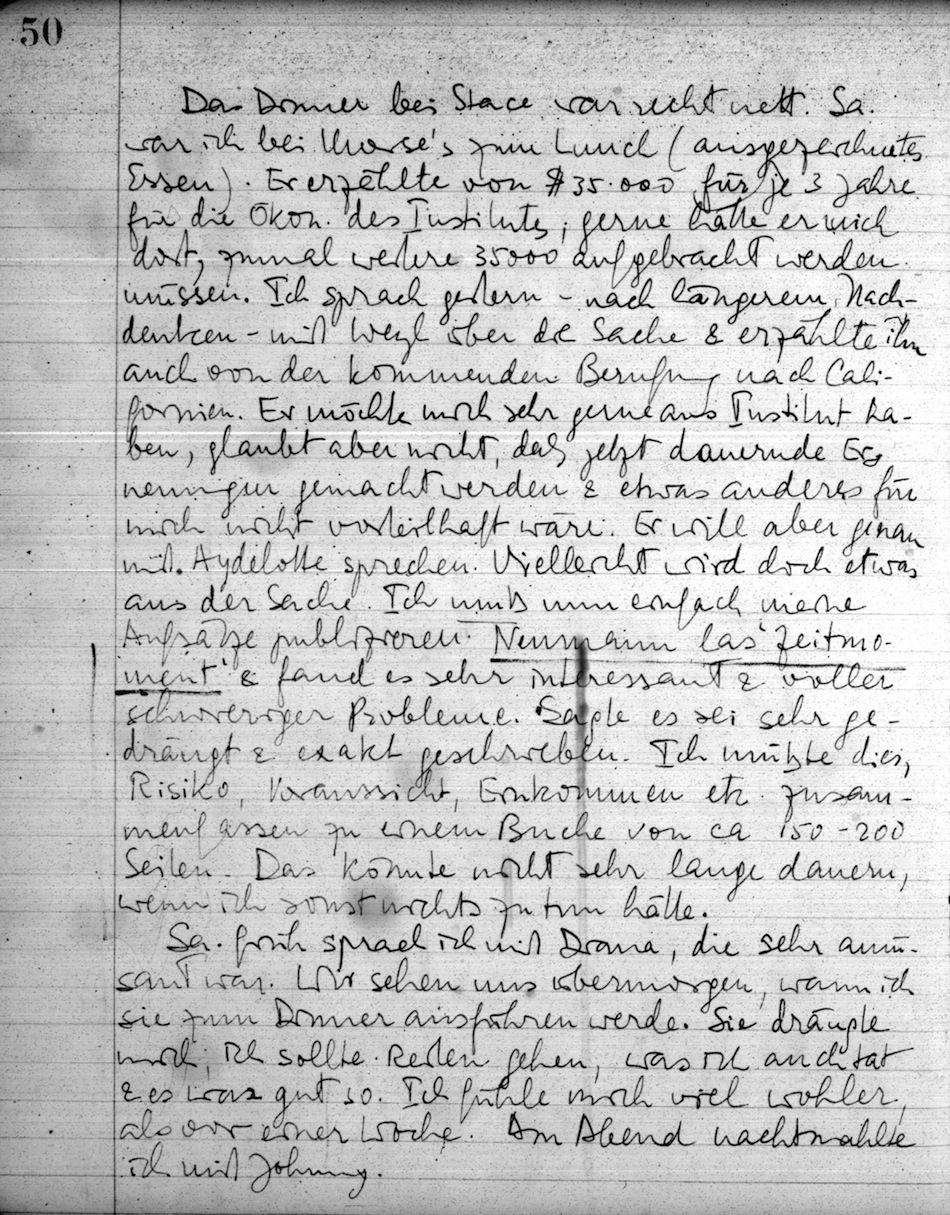 50
Das Dinner bei Stace war recht nett. Sa.
war ich bei Morse's zum Lunch (ausgezeichnetes
Essen). Er erzählte von $35.000 für je 3 Jahre
für die Ökon. des Institutes; gerne hätte er mich
dort, zumal weitere 35000 aufgebracht werden
müssen. Ich sprach gestern - nach längerem Nach-
denken - mit Weyl über die Sache & erzählte ihm
auch von der kommenden Berufung nach Cali-
fornien. Er möchte mich sehr gerne ans Institut ha-
ben, glaubt aber nicht, daß jetzt dauernde Er-
nennungen gemacht werden & etwas anderes für
mich nicht vorteilhaft wäre. Er will aber genau
mit Aydelotte sprechen. Vielleicht wird doch etwas
aus der Sache. Ich muß nun einfach meine
Aufsätze publizieren. Neumann las 'Zeitmo-
ment' & fand es sehr interessant & voller
schwieriger Probleme. Sagte es sei sehr ge-
drängt & exakt geschrieben. Ich müßte dies,
Risiko, Voraussicht, Einkommen etc. zusam-
menfassen zu einem Buche von ca 150-200
Seiten. Das könnte nicht sehr lange dauern,
wenn ich sonst nichts zu tun hätte.
Sa. früh sprach ich mit Diana, die sehr amü-
sant war. Wir sehen uns übermorgen, wann ich
sie zum Dinner ausführen werde. Sie drängte
mich, ich sollte Reiten gehen, was ich auch tat
& es war gut so. Ich fühle mich viel wohler,
als vor einer Woche. Am Abend nachtmahlte
ich mit Johnny.